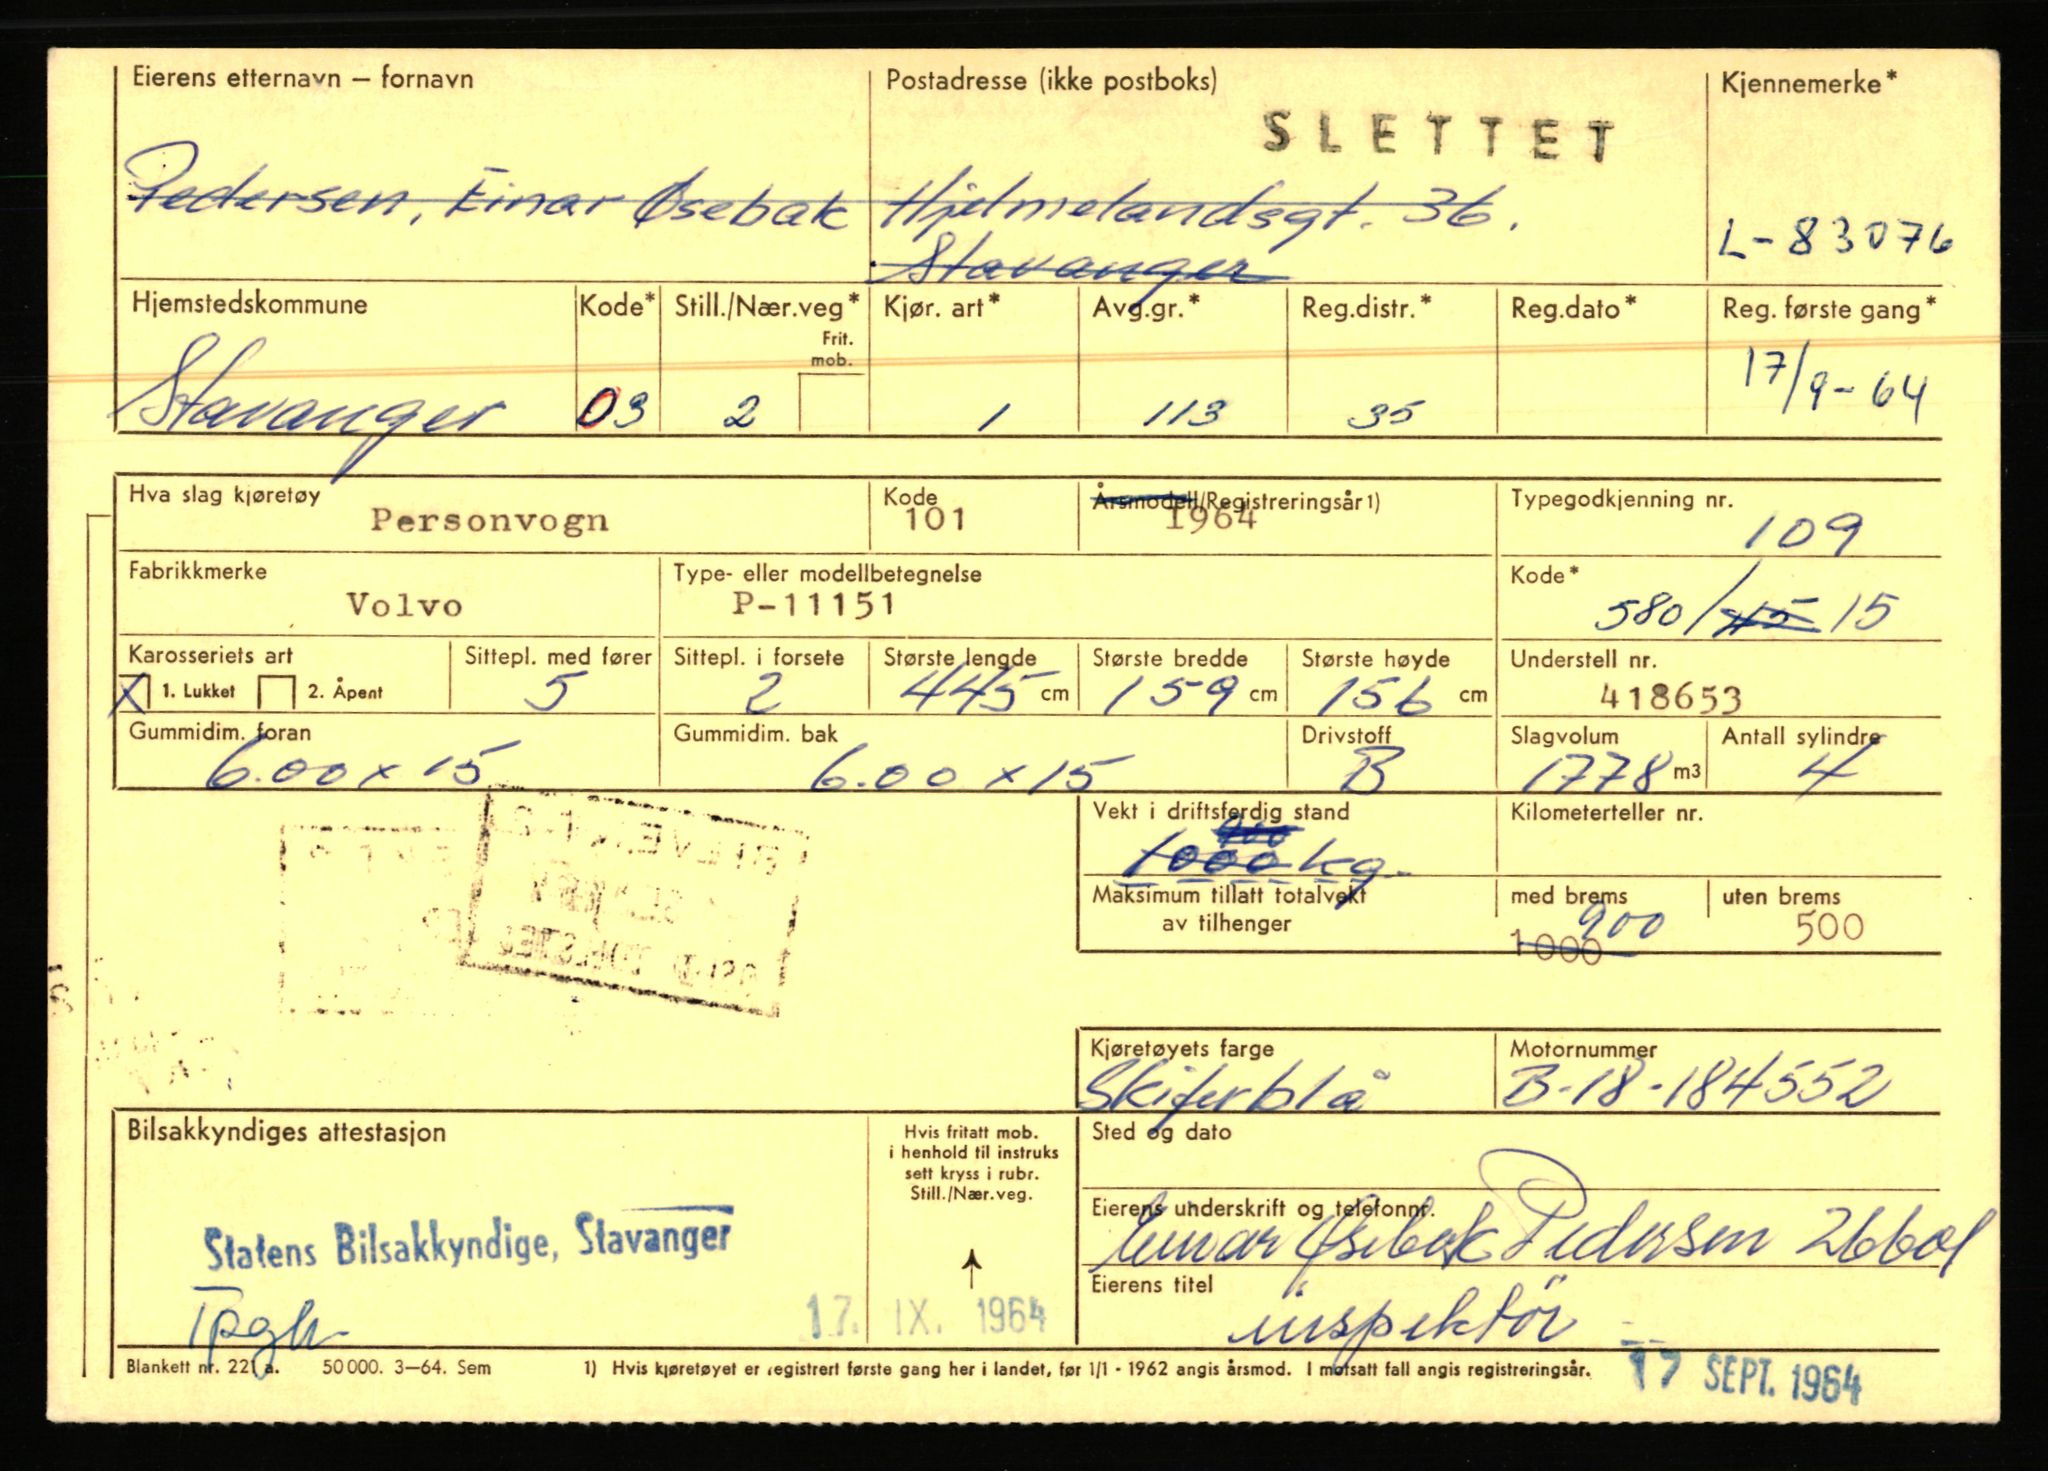 Eierens etternavn – fornavn
Postadresse (ikke postboks)
Kjennemerke*
SLETTET
Pedersen, Einar Øsebak
Hjelmelandsgt. 36.
Stavanger
L-83076
Hjemstedskommune
Kode*
Still./Nær.veg*
Kjør. art*
Avg.gr.*
Reg.distr.*
Reg.dato*
Reg. første gang*
Frit.
mob.
Stavanger
03
2
1
113
35
17/9-64
Hva slag kjøretøy
Kode
Årsmodell/Registreringsår 1)
Typegodkjenning nr.
Personvogn
101
1964
109
Fabrikkmerke
Type- eller modellbetegnelse
Kode*
Volvo
P-11151
580/15
Karosseriets art
Sittepl. med fører
Sittepl. i forsete
Største lengde
Største bredde
Største høyde
Understell nr.
X 1. Lukket
2. Åpent
5
2
445 cm
159 cm
156 cm
418653
Gummidim. foran
Gummidim. bak
Drivstoff
Slagvolum
Antall sylindre
6.00 x 15
6.00 x 15
B
1778 m3
4
Vekt i driftsferdig stand
Kilometerteller nr.
900
1000 kg.
Maksimum tillatt totalvekt
av tilhenger
med brems
uten brems
900
1000
500
Kjøretøyets farge
Motornummer
Skiferblå
B-18-184552
Bilsakkyndiges attestasjon
Hvis fritatt mob.
i henhold til instruks
sett kryss i rubr.
Still./Nær.veg.
Sted og dato
Eierens underskrift og telefonnr.
Einar Øsebak Pedersen 26601
Statens Bilsakkyndige, Stavanger
Eierens titel
inspektør
17. IX. 1964
Blankett nr. 221 a.
50 000. 3–64. Sem
1) Hvis kjøretøyet er registrert første gang her i landet, før 1/1 - 1962 angis årsmod. I motsatt fall angis registreringsår.
17 SEPT. 1964